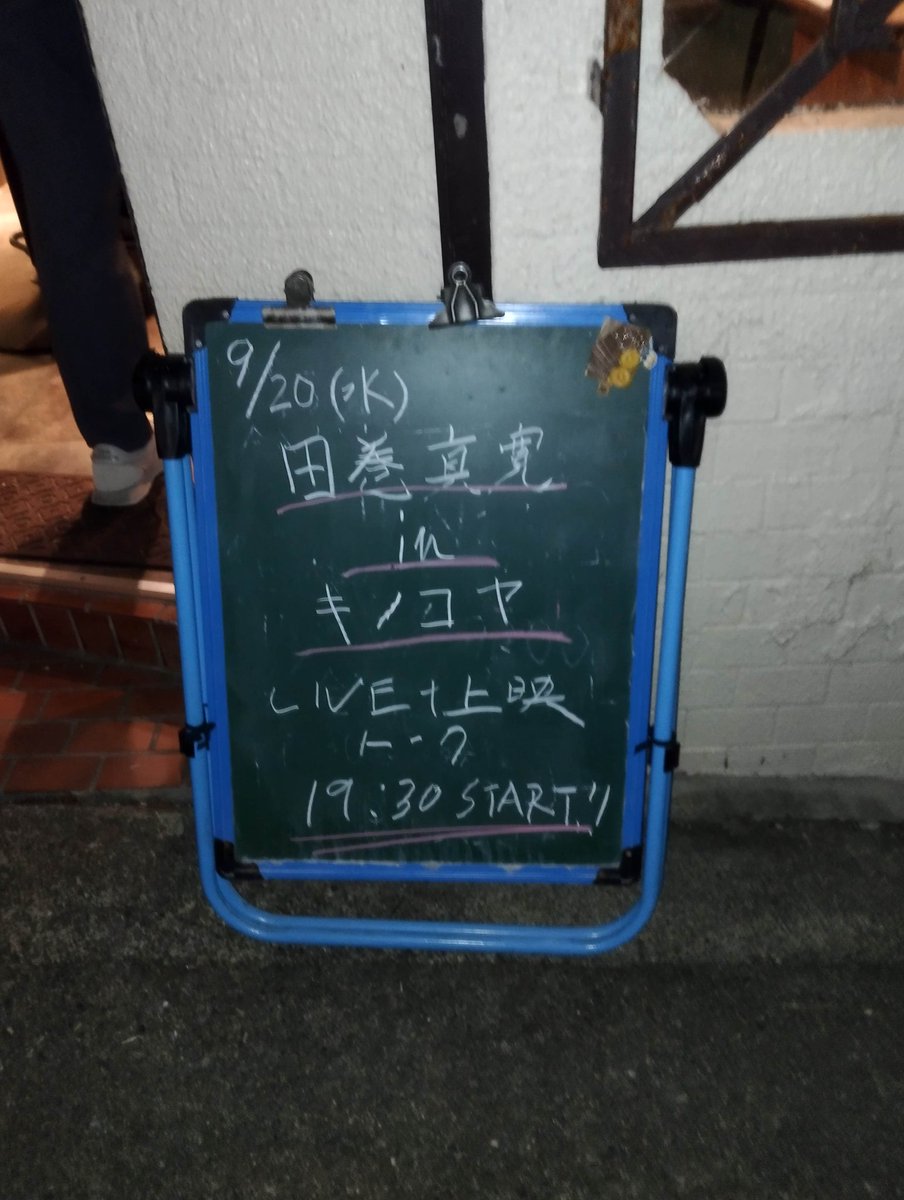 9/20(水)
田巻真寛
in
キノコヤ
LIVE+上映
トーク
19:30 START!!